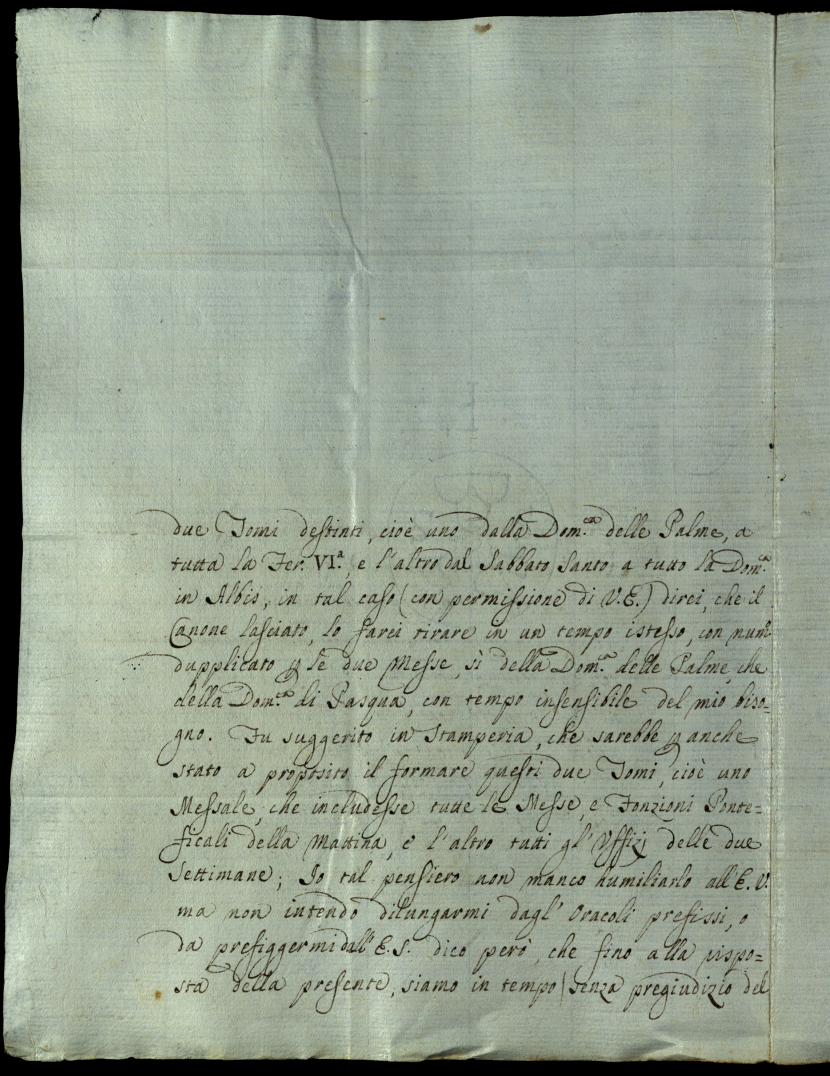 due Tomi destinti, cioè uno dalla Dom.ca delle Palme, a
tutta la Fer. VI.a, e l'altro dal Sabbato Santo a tutto la Dom.ca
in Albis, in tal caso (con permissione di V.E.) direi, che il
Canone lasciato, lo farei tirare in un tempo istesso, con num.o
dupplicato p le due Messe, sì della Dom.ca delle Palme, che
della Dom.ca di Pasqua, con tempo insensibile del mio biso=
gno. Fu suggerito in Stamperia, che sarebbe p anche
stato a proposito il formare questi due Tomi, cioè uno
Messale, che includesse tutte le Messe, e Fonzioni Ponte=
ficali della Mattina, e l'altro tutti gl'Uffizj delle due
Settimane; Io tal pensiero non manco humiliarlo all'E.V.
ma non intendo dilungarmi dagl'Oracoli prefissi, o
da prefiggermi dall'E.S. dico però, che fino alla rispo=
sta della presente, siamo in tempo (senza pregiudizio del